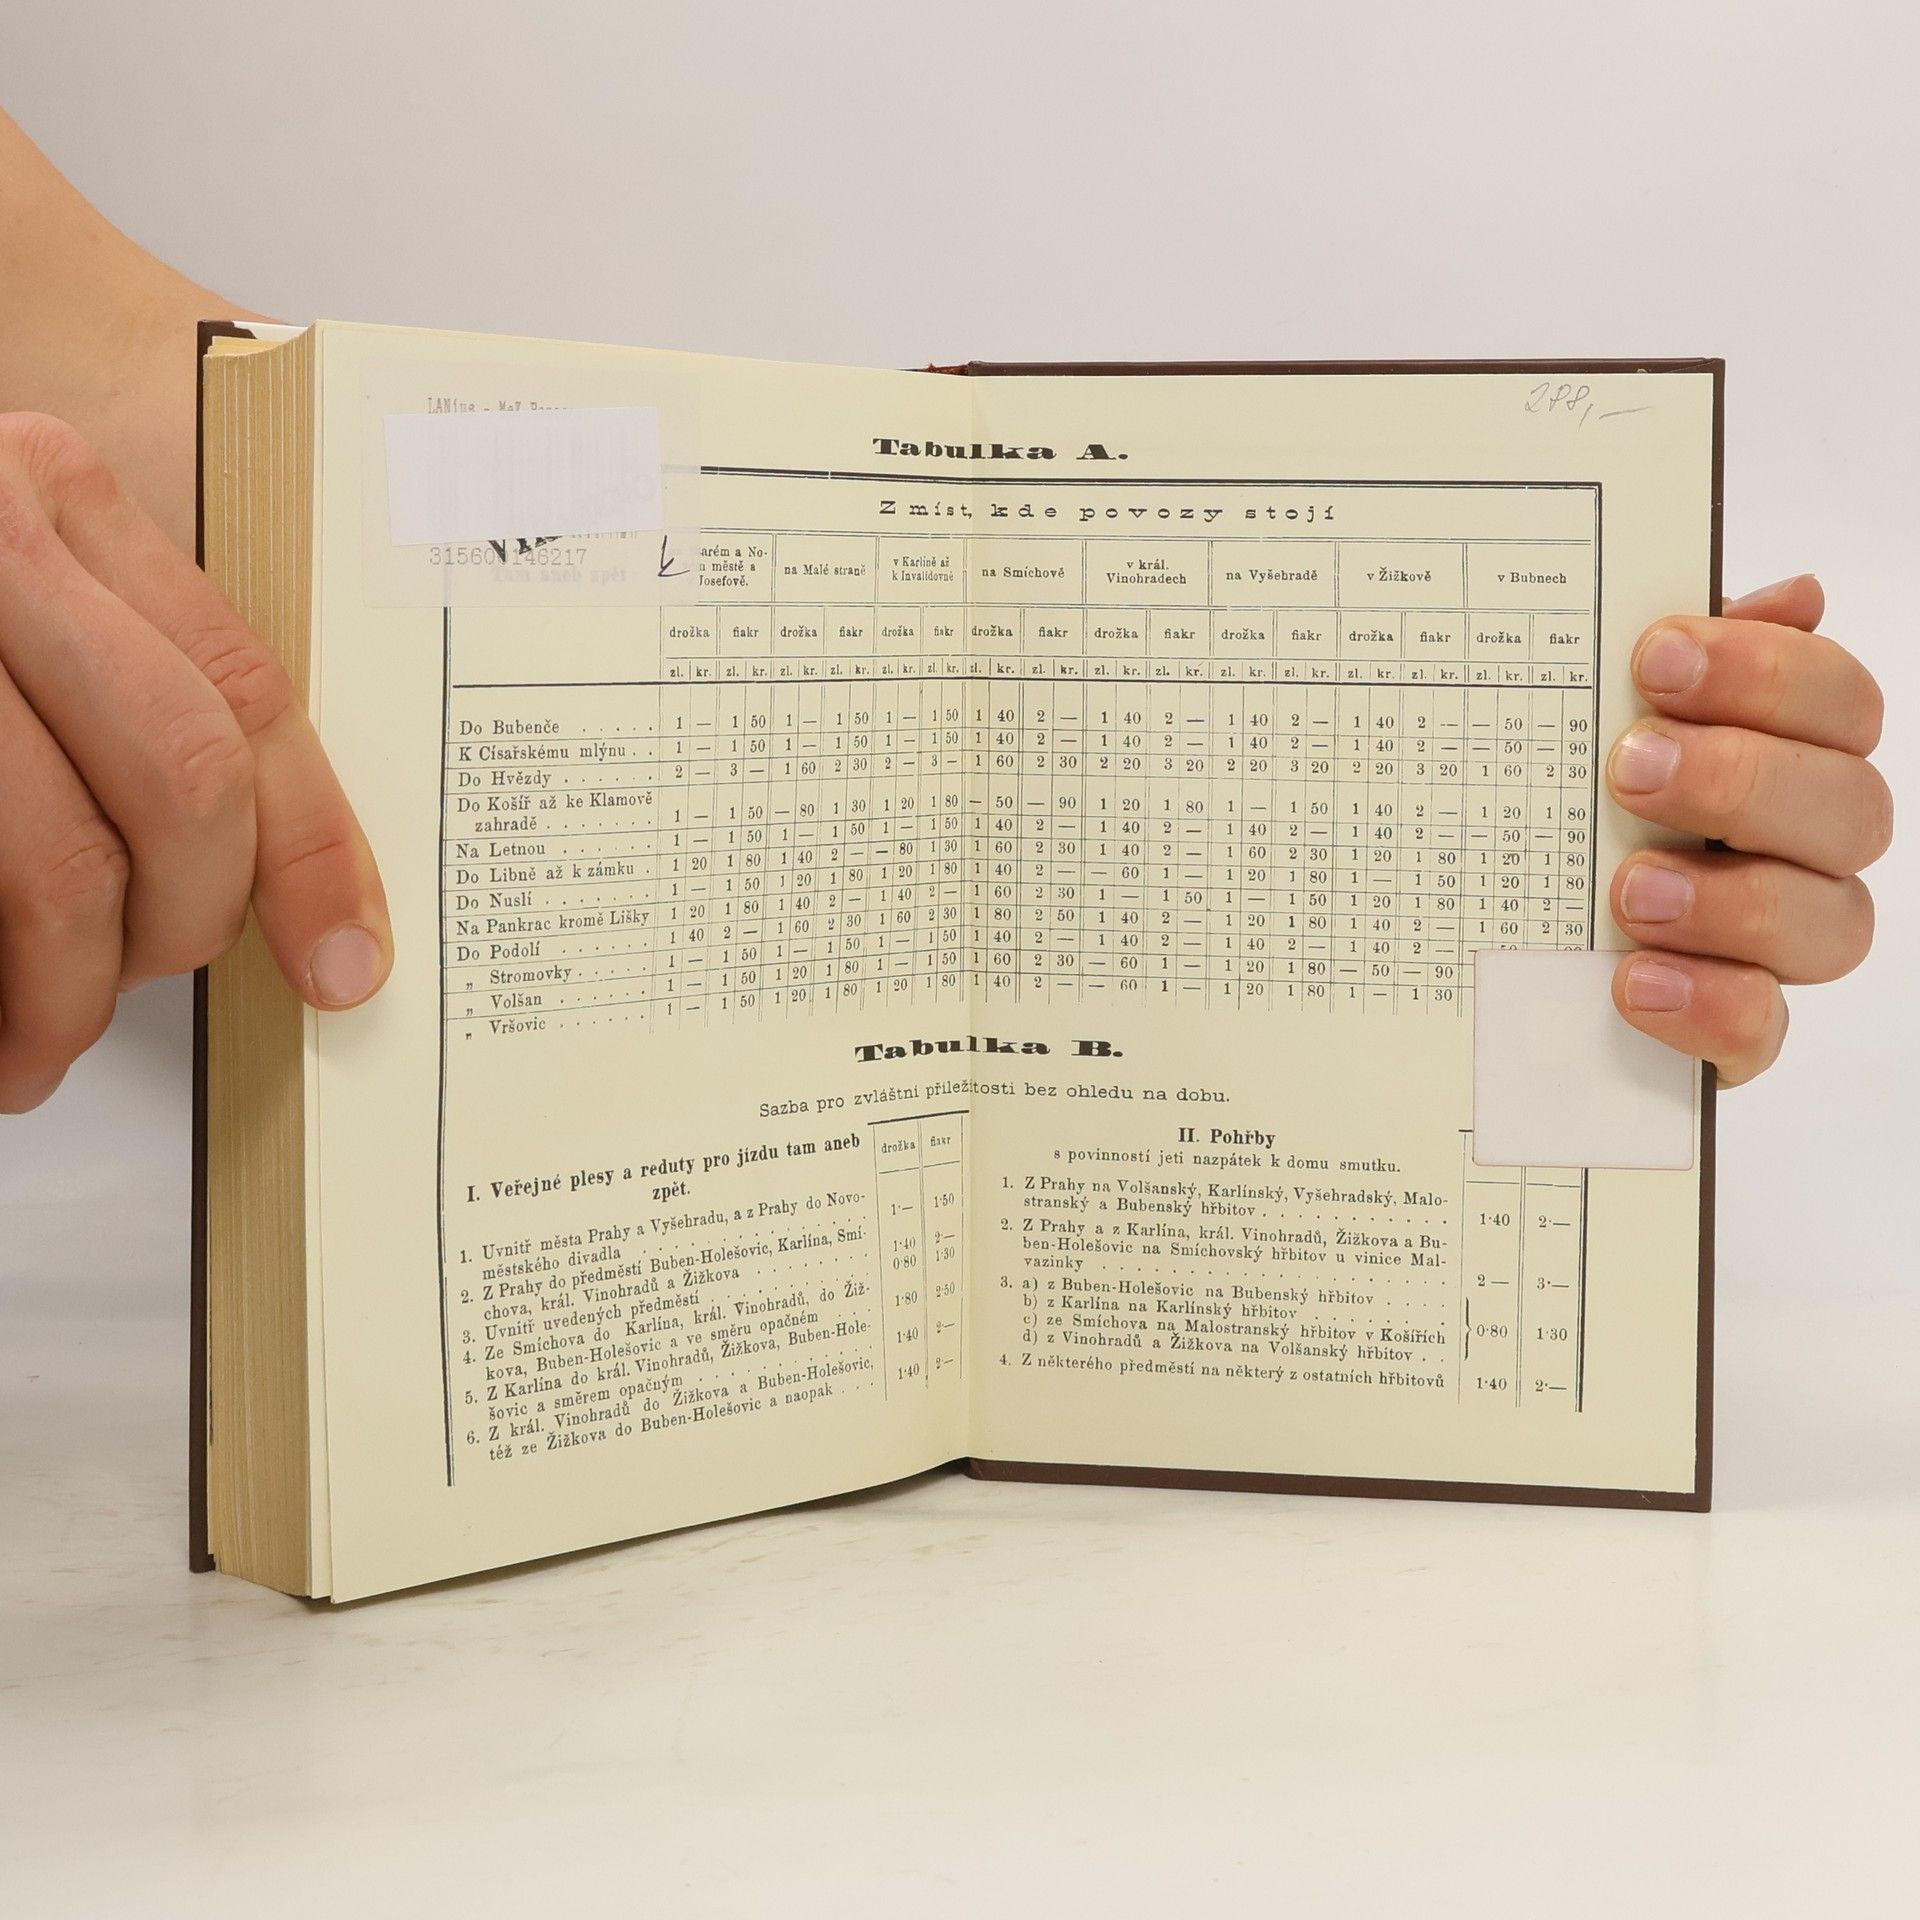 288,—
LANius -
315600146217
Tabulka A.
Z míst, kde povozy stojí
arém a No-
městě a
Josefově.
na Malé straně
v Karlíně až
k Invalidovně
na Smíchově
v král.
Vinohradech
na Vyšehradě
v Žižkově
v Bubnech
drožka fiakr drožka fiakr drožka fiakr drožka fiakr drožka fiakr drožka fiakr drožka fiakr drožka fiakr
zl. kr. zl. kr. zl. kr. zl. kr. zl. kr. zl. kr. zl. kr. zl. kr. zl. kr. zl. kr. zl. kr. zl. kr. zl. kr. zl. kr. zl. kr. zl. kr.
Do Bubenče . . . . . 1 — 1 50 1 — 1 50 1 — 1 50 1 40 2 — 1 40 2 — 1 40 2 — 1 40 2 — — 50 — 90
K Císařskému mlýnu . . 1 — 1 50 1 — 1 50 1 — 1 50 1 40 2 — 1 40 2 — 1 40 2 — 1 40 2 — — 50 — 90
Do Hvězdy . . . . . . 2 — 3 — 1 60 2 30 2 — 3 — 1 60 2 30 2 20 3 20 2 20 3 20 2 20 3 20 1 60 2 30
Do Košíř až ke Klamově
zahradě . . . . . . . 1 — 1 50 — 80 1 30 1 20 1 80 — 50 — 90 1 20 1 80 1 — 1 50 1 40 2 — 1 20 1 80
Na Letnou . . . . . . 1 — 1 50 1 — 1 50 1 — 1 50 1 40 2 — 1 40 2 — 1 40 2 — 1 40 2 — — 50 — 90
Do Libně až k zámku . 1 20 1 80 1 40 2 — — 80 1 30 1 60 2 30 1 40 2 — 1 60 2 30 1 20 1 80 1 20 1 80
Do Nuslí . . . . . . . 1 — 1 50 1 20 1 80 1 20 1 80 1 40 2 — — 60 1 — 1 20 1 80 1 — 1 50 1 20 1 80
Na Pankrac kromě Lišky 1 20 1 80 1 40 2 — 1 40 2 — 1 60 2 30 1 — 1 50 1 — 1 50 1 20 1 80 1 40 2 —
Do Podolí . . . . . . 1 40 2 — 1 60 2 30 1 60 2 30 1 80 2 50 1 40 2 — 1 20 1 80 1 40 2 — 1 60 2 30
„ Stromovky . . . . . 1 — 1 50 1 — 1 50 1 — 1 50 1 40 2 — 1 40 2 — 1 40 2 — 1 40 2 —
„ Volšan . . . . . . 1 — 1 50 1 20 1 80 1 — 1 50 1 60 2 30 — 60 1 — 1 20 1 80 — 50 — 90
„ Vršovic . . . . . . 1 — 1 50 1 20 1 80 1 20 1 80 1 40 2 — — 60 1 — 1 20 1 80 1 — 1 30
Tabulka B.
Sazba pro zvláštní příležitosti bez ohledu na dobu.
drožka fiakr
I. Veřejné plesy a reduty pro jízdu tam aneb
zpět.
1. Uvnitř města Prahy a Vyšehradu, a z Prahy do Novo-
městského divadla . . . . . . . . . . 1·— 1·50
2. Z Prahy do předměstí Buben-Holešovic, Karlína, Smí-
chova, král. Vinohradů a Žižkova . . . . . . 1·40 2·—
3. Uvnitř uvedených předměstí . . . . . . . . 0·80 1·30
4. Ze Smíchova do Karlína, král. Vinohradů, do Žiž-
kova, Buben-Holešovic a ve směru opačném . . . 1·80 2·50
5. Z Karlína do král. Vinohradů, Žižkova, Buben-Hole-
šovic a směrem opačným . . . . . . . . . 1·40 2·—
6. Z král. Vinohradů do Žižkova a Buben-Holešovic,
též ze Žižkova do Buben-Holešovic a naopak . . . 1·40 2·—
II. Pohřby
s povinností jeti nazpátek k domu smutku.
1. Z Prahy na Volšanský, Karlínský, Vyšehradský, Malo-
stranský a Bubenský hřbitov . . . . . . . . . . 1·40 2·—
2. Z Prahy a z Karlína, král. Vinohradů, Žižkova a Bu-
ben-Holešovic na Smíchovský hřbitov u vinice Mal-
vazinky . . . . . . . . . . . . . . . . . 2 — 3·—
3. a) z Buben-Holešovic na Bubenský hřbitov . . . .
b) z Karlína na Karlínský hřbitov . . . . . . .
c) ze Smíchova na Malostranský hřbitov v Košířích 0·80 1·30
d) z Vinohradů a Žižkova na Volšanský hřbitov . .
4. Z některého předměstí na některý z ostatních hřbitovů 1·40 2·—